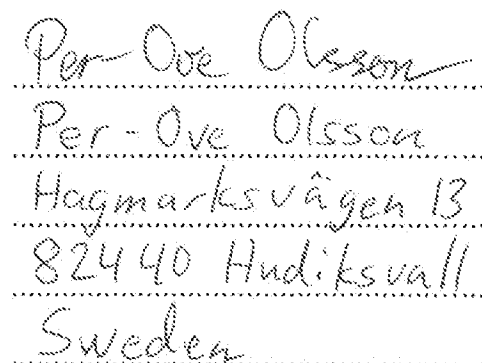 Per-Ove Olsson
Per-Ove Olsson
Hagmarksvägen 13
82440 Hudiksvall
Sweden